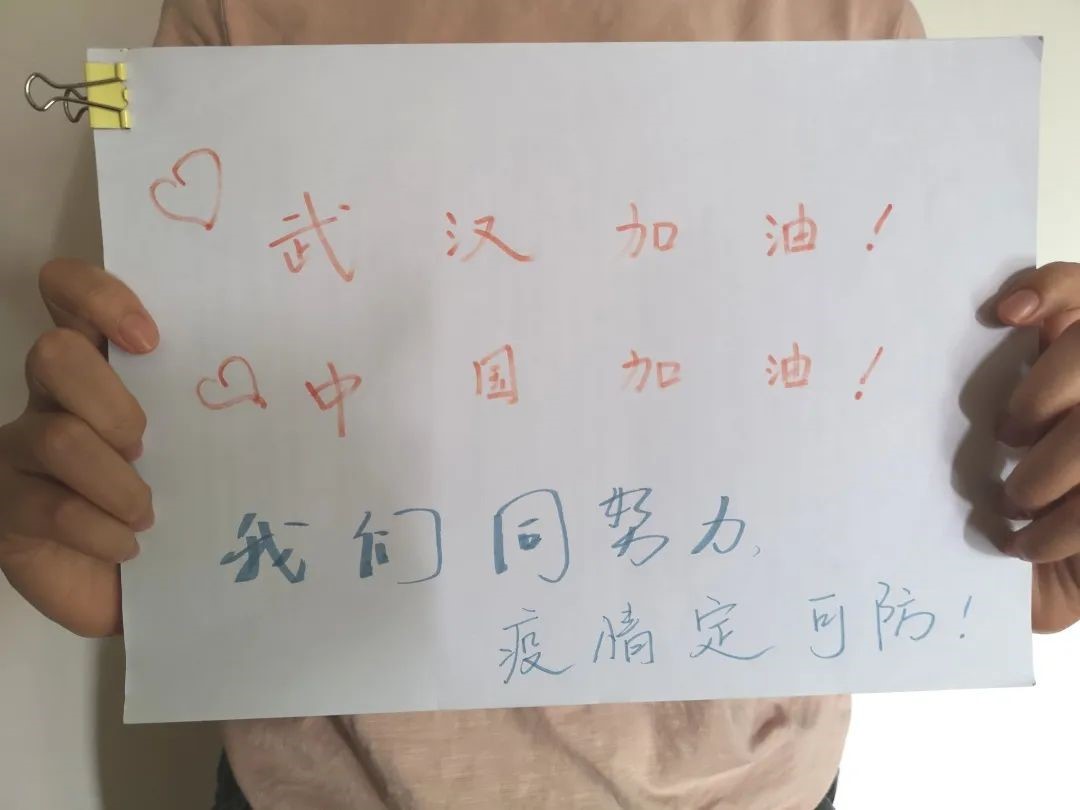 武汉加油！
中国加油！
我们同努力，
疫情定可防！